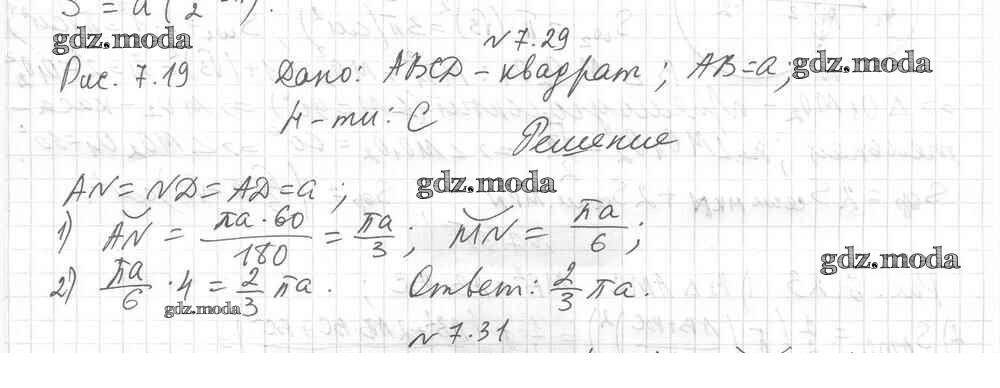 S = a
gdz.moda
№ 7.29
Рис. 7.19 Дано: ABCD – квадрат; AB = a; gdz.moda
Н-ти: C
Решение
AN = ND = AD = a; gdz.moda
1) AN = πa·60/180 = πa/3; MN = πa/6;
gdz.moda
2) πa/6 · 4 = 2/3 πa. Ответ: 2/3 πa.
gdz.moda
№ 7.31